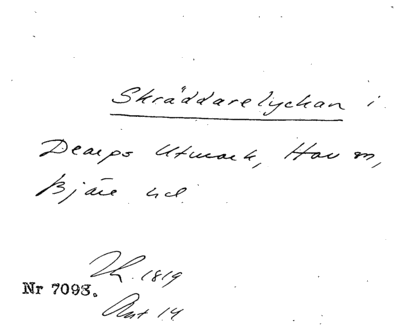 Skräddarelyckan i
Dearps Utmark, Hov sn,
Bjäre hd
Lh. 1819
Nr 7093.
Akt 14